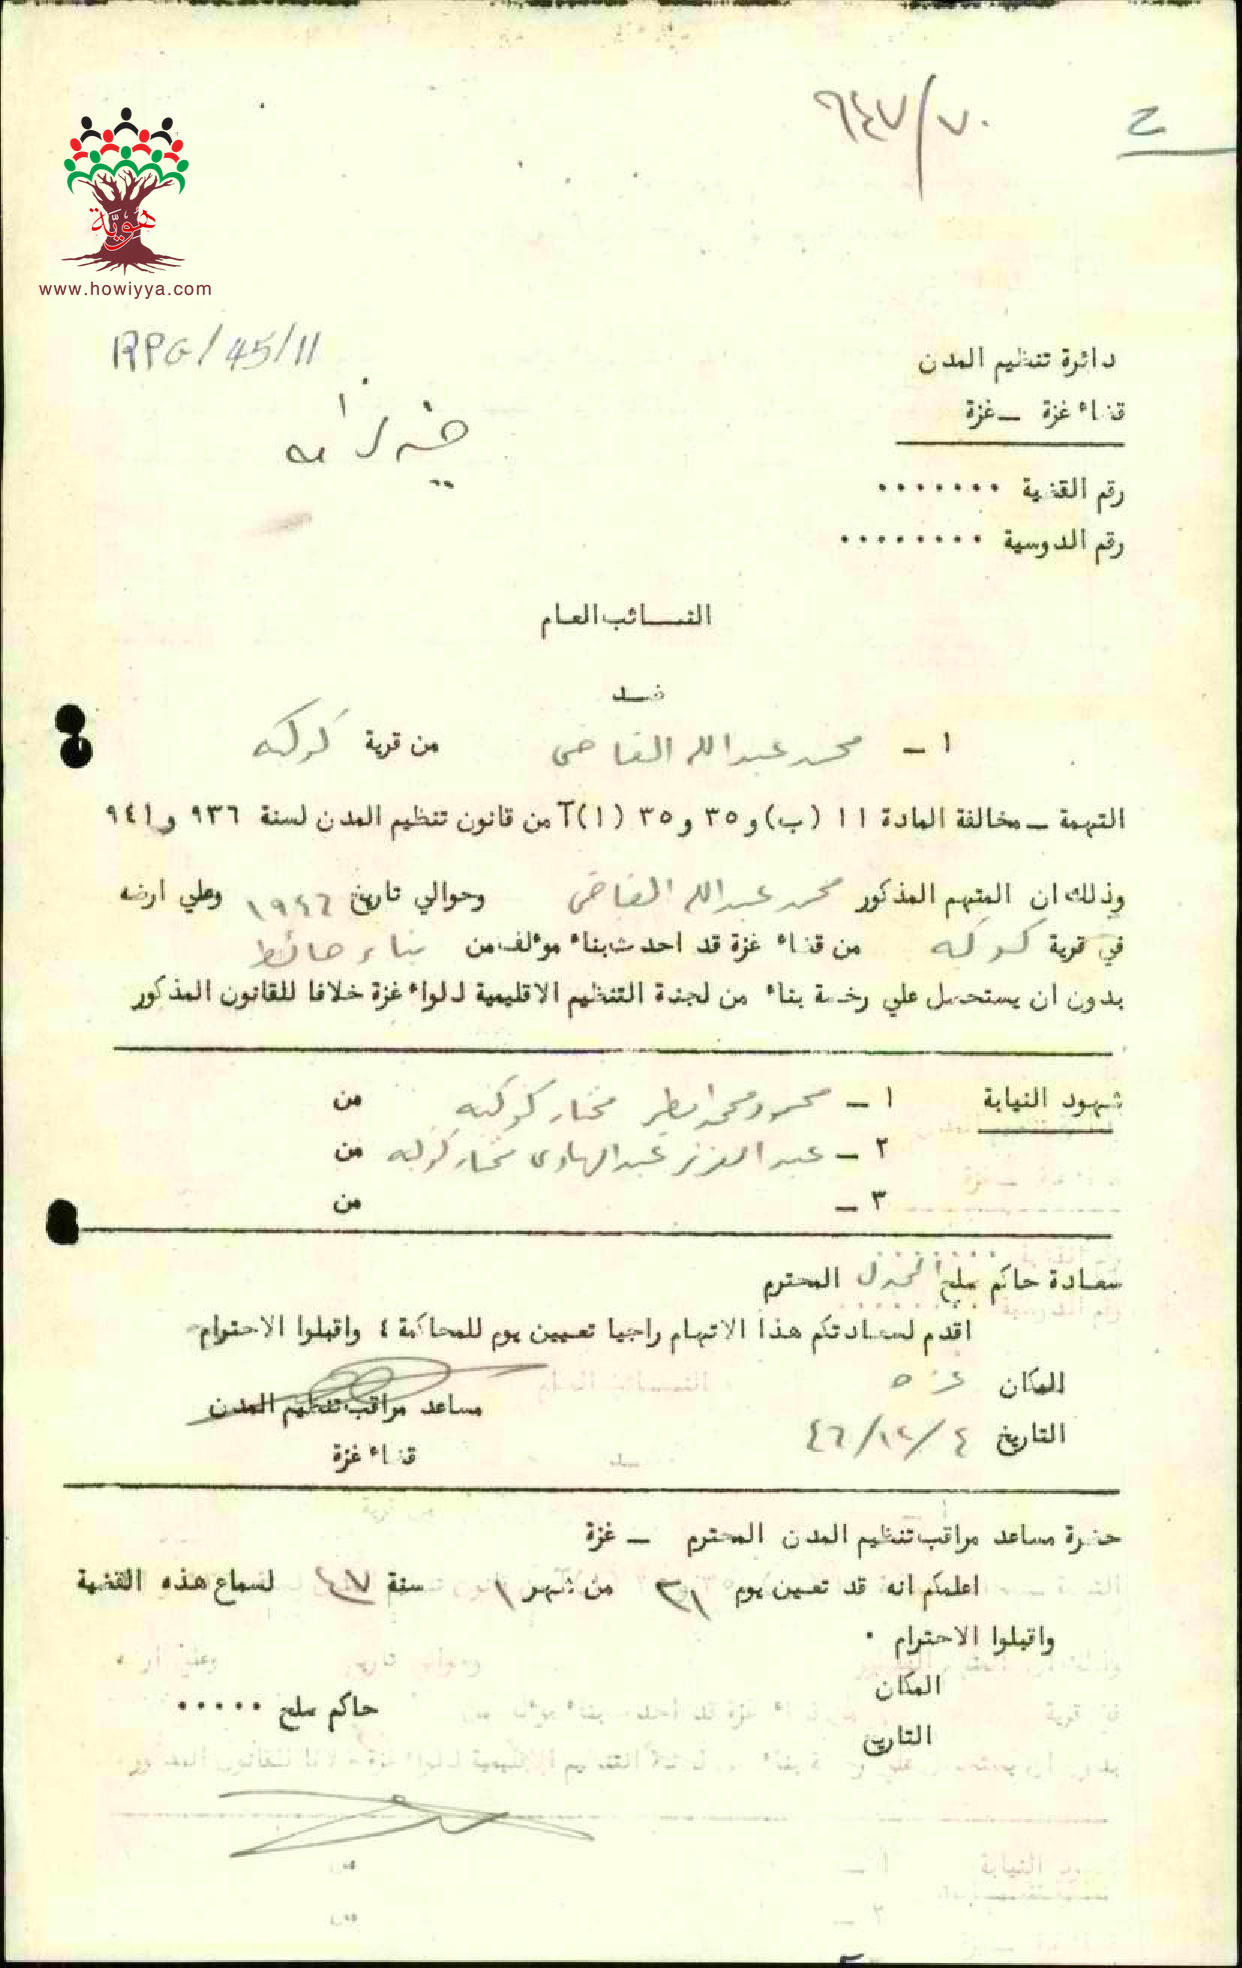 ح
٩٤٧/٧٠
هوية
www.howiyya.com
RPG/45/11
دائرة تنظيم المدن
قضاء غزة — غزة
رقم القضية .......
رقم الدوسية ........
النائب العام
ضد
١ — محمد عبدالله القاضي من قرية كوكبه
التهمة — مخالفة المادة ١١ (ب) و ٣٥ و ٣٥ (١) آ من قانون تنظيم المدن لسنة ٩٣٦ و ٩٤١
وذلك ان المتهم المذكور محمد عبدالله القاضي وحوالي تاريخ ١٩٤٦ وعلي ارضه
في قرية كوكبه من قضاء غزة قد احدث بناء موءلف من بناء حائط
بدون ان يستحصل علي رخصة بناء من لجنة التنظيم الاقليمية للواء غزة خلافا للقانون المذكور
شهود النيابة ١ — محمود محمد مختار كوكبه من
٢ — عبد العزيز عبد الهادي مختار كوكبه من
٣ — من
سعادة حاكم صلح المجدل المحترم
اقدم لسعادتكم هذا الاتهام راجيا تعيين يوم للمحاكمة ٤ واقبلوا الاحترام
المكان غزه
مساعد مراقب تنظيم المدن
التاريخ ٤/١٢/٤٦
قضاء غزة
حضرة مساعد مراقب تنظيم المدن المحترم — غزة
اعلمكم انه قد تعيين يوم ٣١ من شهر ١ سنة ٤٧ لسماع هذه القضية
واقبلوا الاحترام .
المكان
حاكم صلح .....
التاريخ